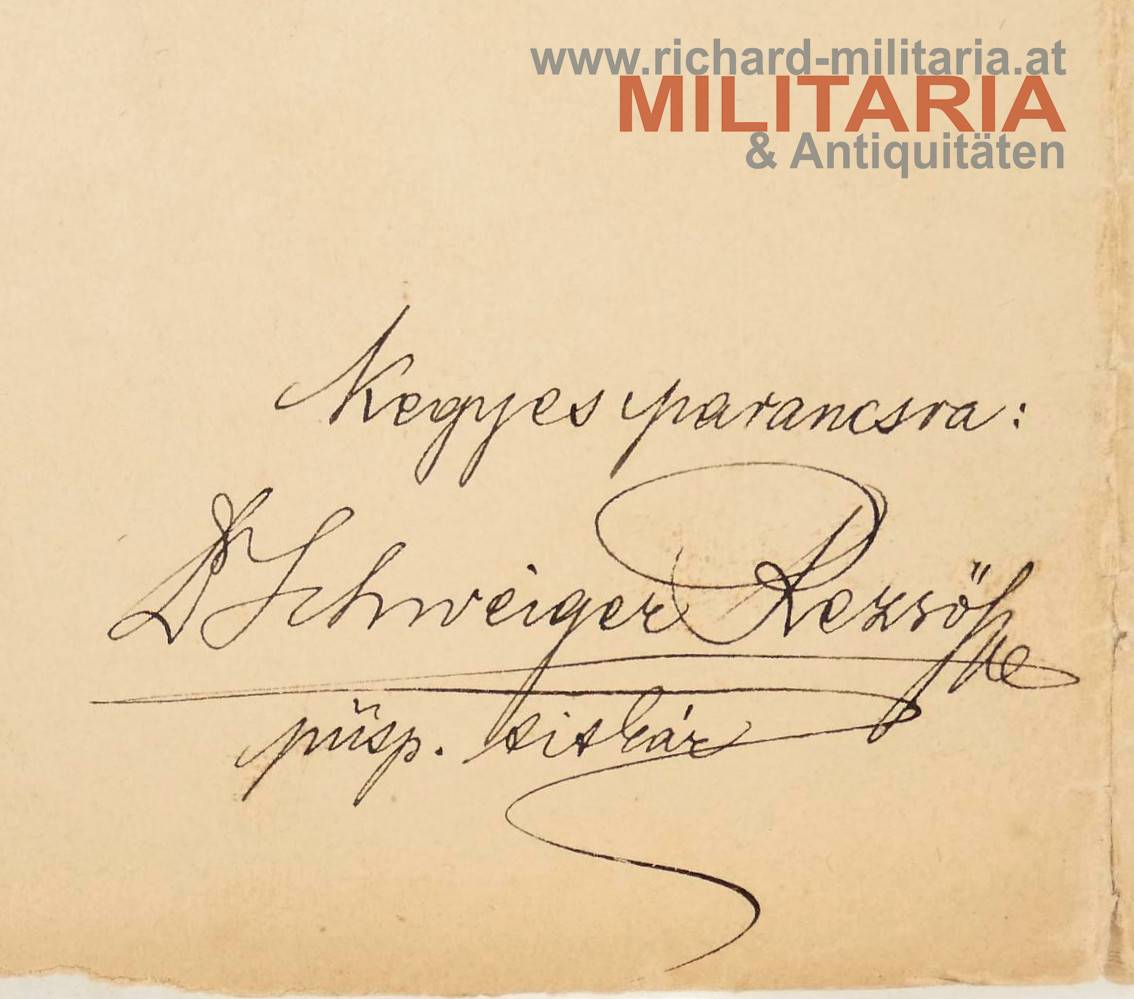 www.richard-militaria.at
MILITARIA
& Antiquitäten
Kegyes parancsra:
Dr Schweiger Rezső
püsp. titkár